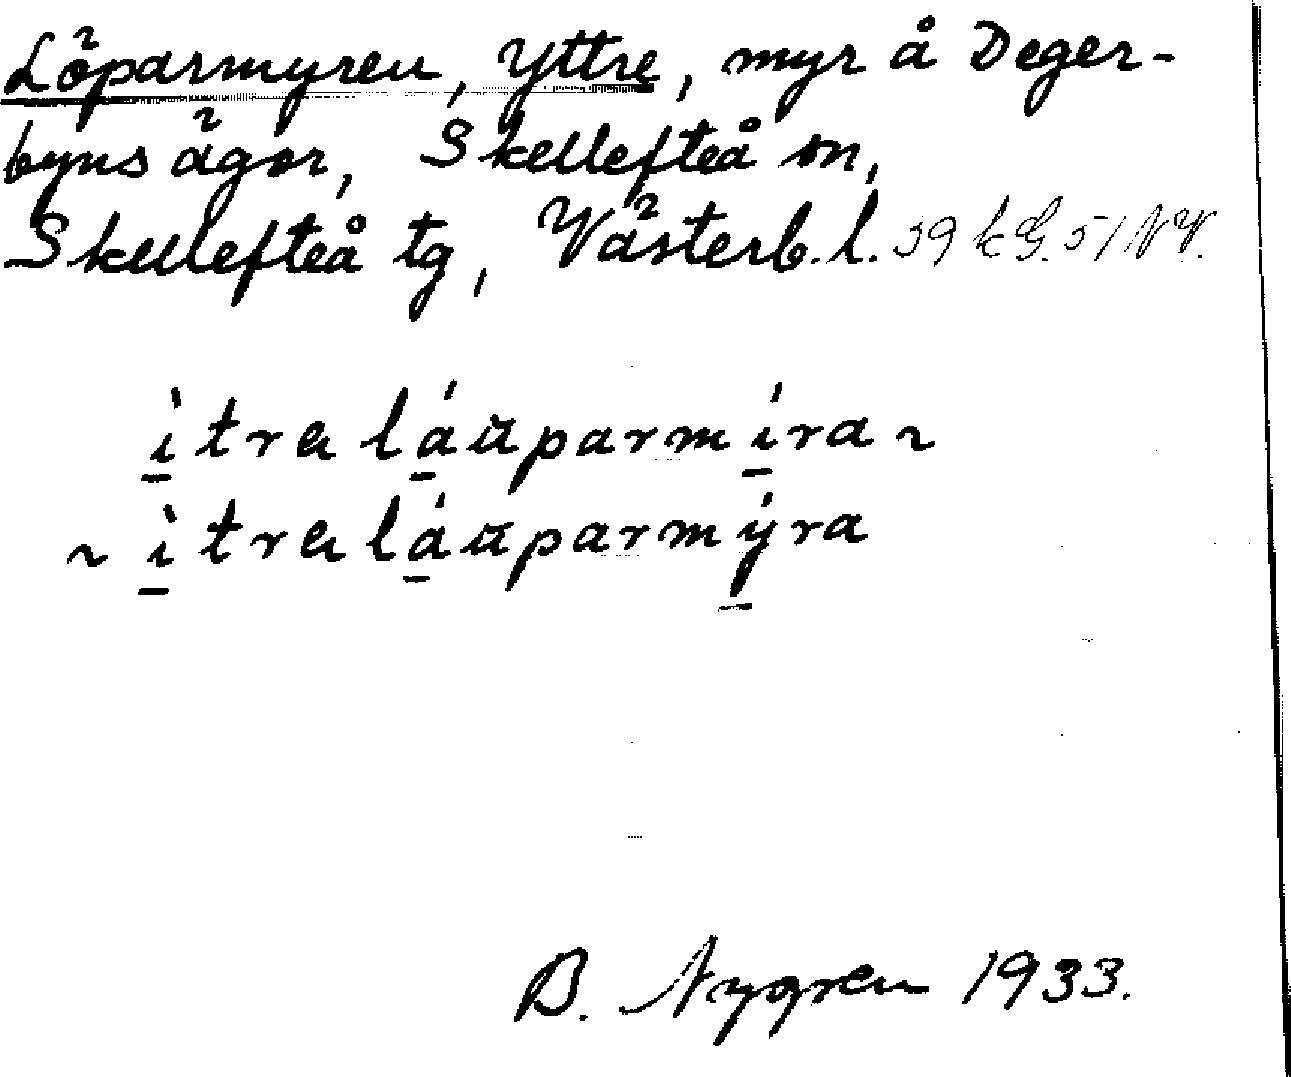 Löparmyren, Yttre, myr å Deger-
byns ägor, Skellefteå sn,
Skellefteå tg, Västerb. l. 59 k G. 51 NV.
ìtra láuparmíra ~
~ ìtra láuparmýra
B. Nygren 1933.